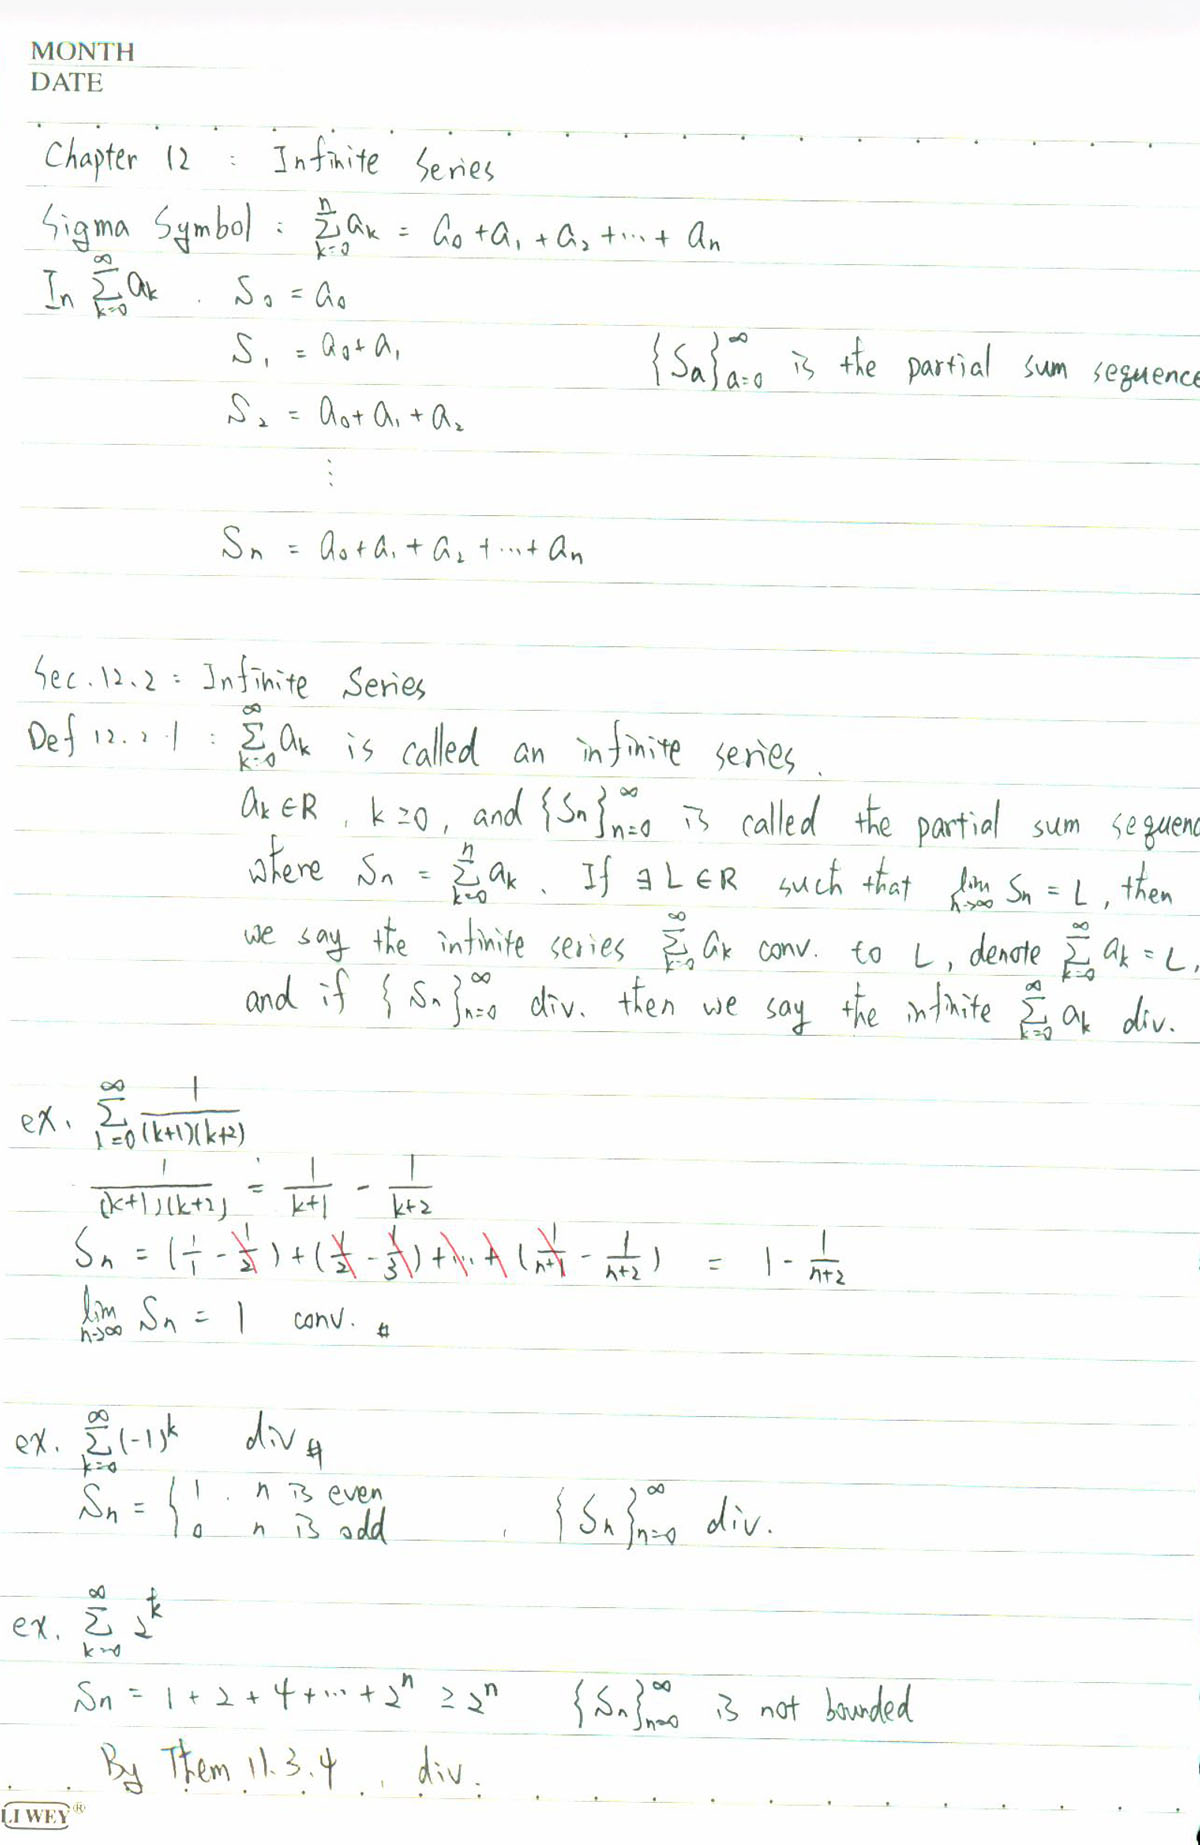 MONTH
DATE
Chapter 12 : Infinite Series
Sigma Symbol : \sum_{k=0}^{n} a_k = a_0 + a_1 + a_2 + ⋯ + a_n
In \sum_{k=0}^{∞} a_k . S_0 = a_0
S_1 = a_0 + a_1
{S_a}_{a=0}^{∞} is the partial sum sequence
S_2 = a_0 + a_1 + a_2
⋮
S_n = a_0 + a_1 + a_2 + ⋯ + a_n
Sec. 12.2 : Infinite Series
Def 12.2.1 : \sum_{k=0}^{∞} a_k is called an infinite series.
a_k ∈ R , k ≥ 0 , and {S_n}_{n=0}^{∞} is called the partial sum sequenc
where S_n = \sum_{k=0}^{n} a_k . If ∃ L ∈ R such that \lim_{n→∞} S_n = L , then
we say the infinite series \sum_{k=0}^{∞} a_k conv. to L , denote \sum_{k=0}^{∞} a_k = L ,
and if {S_n}_{n=0}^{∞} div. then we say the infinite \sum_{k=0}^{∞} a_k div.
ex. \sum_{1=0}^{∞} \frac{1}{(k+1)(k+2)}
\frac{1}{(k+1)(k+2)} = \frac{1}{k+1} - \frac{1}{k+2}
S_n = (\frac{1}{1} - \frac{1}{2}) + (\frac{1}{2} - \frac{1}{3}) + ⋯ + (\frac{1}{n+1} - \frac{1}{n+2}) = 1 - \frac{1}{n+2}
\lim_{n→∞} S_n = 1 conv. #
ex. \sum_{k=0}^{∞} (-1)^k div #
S_n = { 1 . n is even
0 n is odd , {S_n}_{n=0}^{∞} div.
ex. \sum_{k=0}^{∞} 2^k
S_n = 1 + 2 + 4 + ⋯ + 2^n ≥ 2^n {S_n}_{n=0}^{∞} is not bounded
By Thm 11.3.4 , div.
LI WEY®